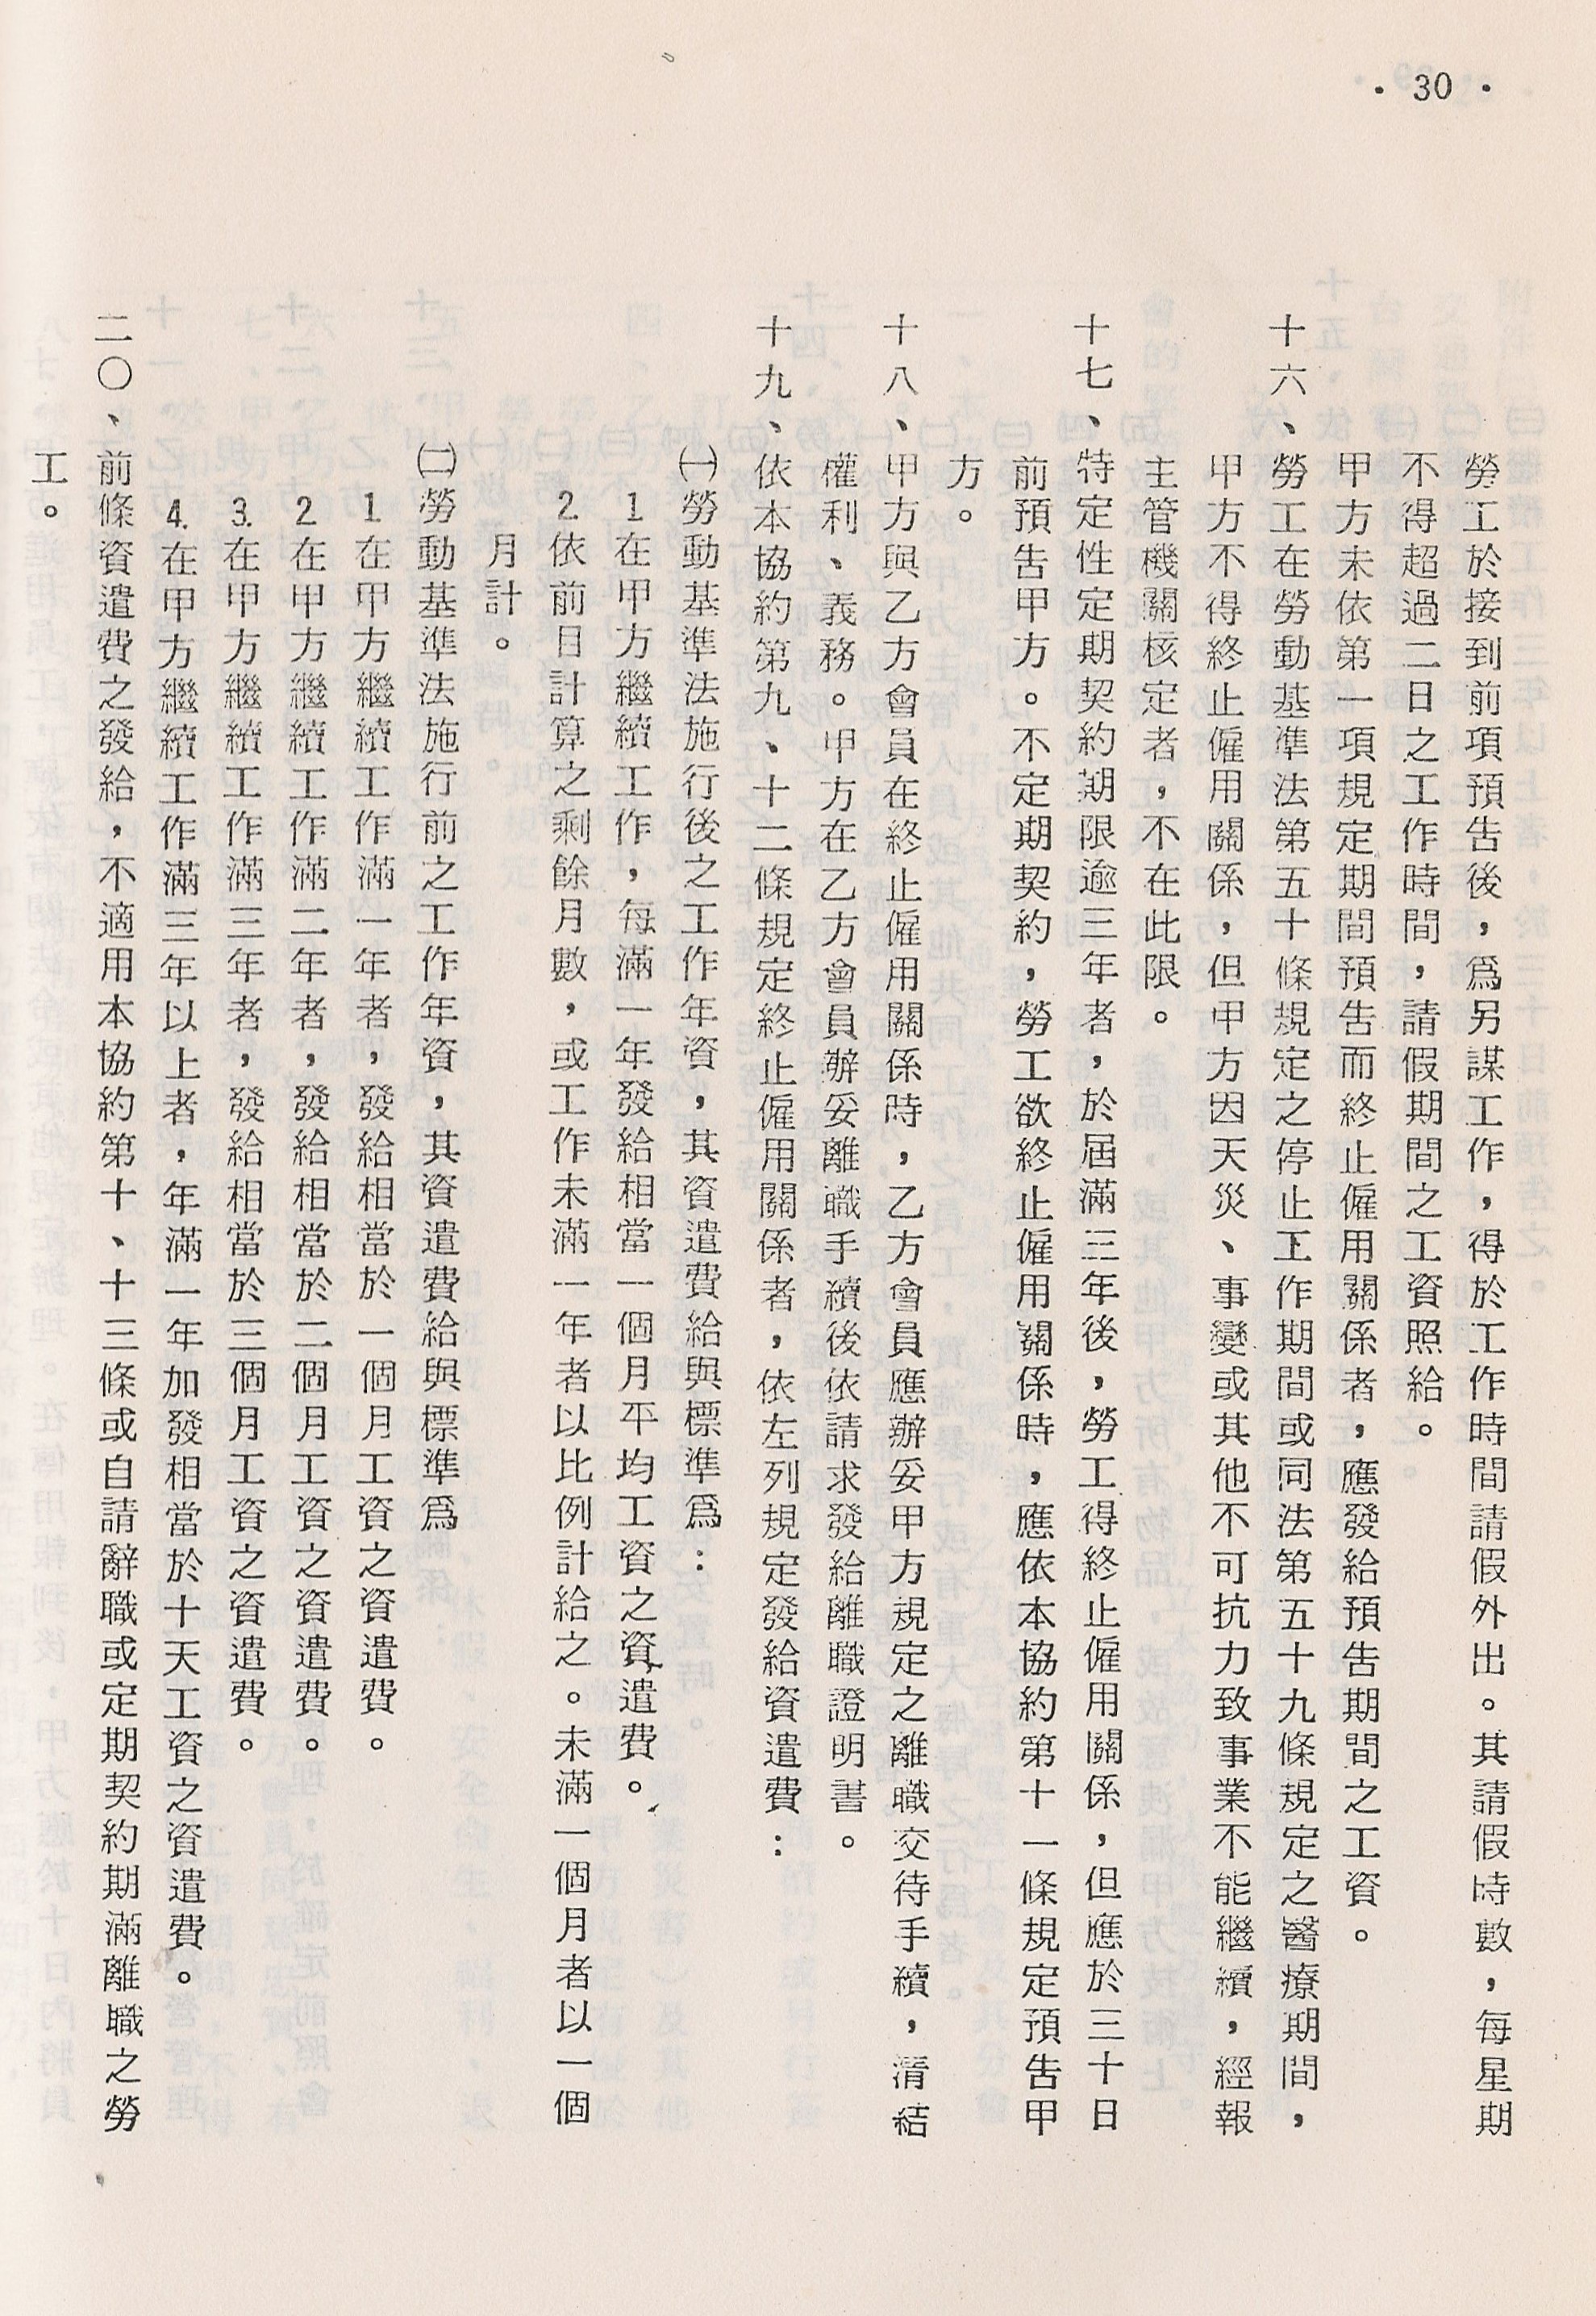 · 30 ·
勞工於接到前項預告後，爲另謀工作，得於工作時間請假外出。其請假時數，每星期
不得超過二日之工作時間，請假期間之工資照給。
甲方未依第一項規定期間預告而終止僱用關係者，應發給預告期間之工資。
十六、勞工在勞動基準法第五十條規定之停止工作期間或同法第五十九條規定之醫療期間，
甲方不得終止僱用關係，但甲方因天災、事變或其他不可抗力致事業不能繼續，經報
主管機關核定者，不在此限。
十七、特定性定期契約期限逾三年者，於屆滿三年後，勞工得終止僱用關係，但應於三十日
前預告甲方。不定期契約，勞工欲終止僱用關係時，應依本協約第十一條規定預告甲
方。
十八、甲方與乙方會員在終止僱用關係時，乙方會員應辦妥甲方規定之離職交待手續，清結
權利、義務。甲方在乙方會員辦妥離職手續後依請求發給離職證明書。
十九、依本協約第九、十二條規定終止僱用關係者，依左列規定發給資遣費：
㈠勞動基準法施行後之工作年資，其資遣費給與標準爲：
1.在甲方繼續工作，每滿一年發給相當一個月平均工資之資遣費。
2.依前目計算之剩餘月數，或工作未滿一年者以比例計給之。未滿一個月者以一個
月計。
㈡勞動基準法施行前之工作年資，其資遣費給與標準爲
1.在甲方繼續工作滿一年者，發給相當於一個月工資之資遣費。
2.在甲方繼續工作滿二年者，發給相當於二個月工資之資遣費。
3.在甲方繼續工作滿三年者，發給相當於三個月工資之資遣費。
4.在甲方繼續工作滿三年以上者，年滿一年加發相當於十天工資之資遣費。
二〇、前條資遣費之發給，不適用本協約第十、十三條或自請辭職或定期契約期滿離職之勞
工。